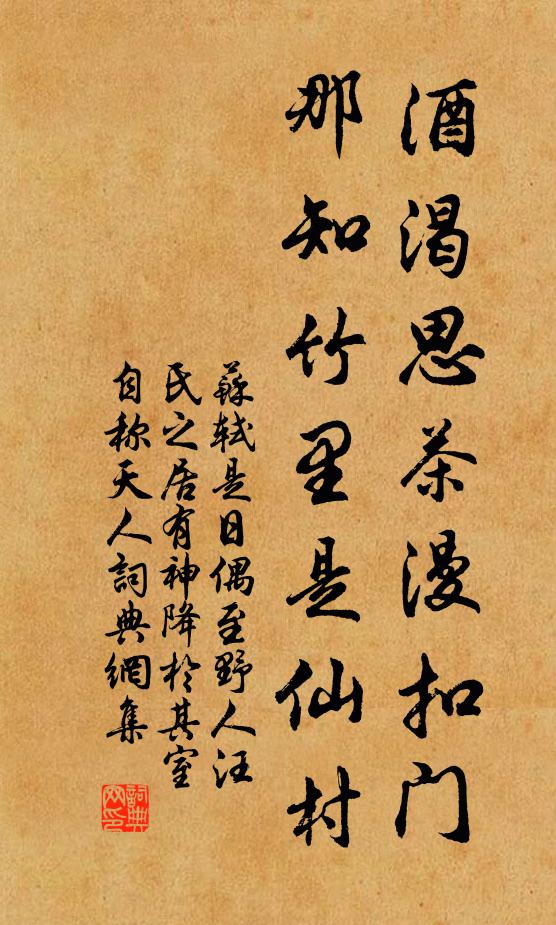 酒渴思茶漫扣门
那知竹里是仙村
蘇軾是日偶至野人汪
氏之居有神降於其室
自称天人詞典網集
詞典網印